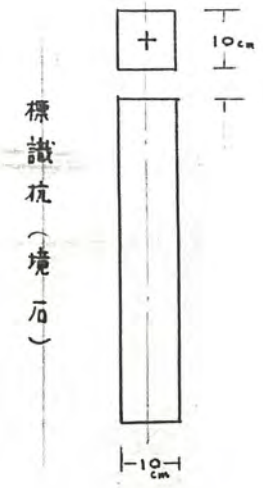 標識杭（境石）
10cm
10cm